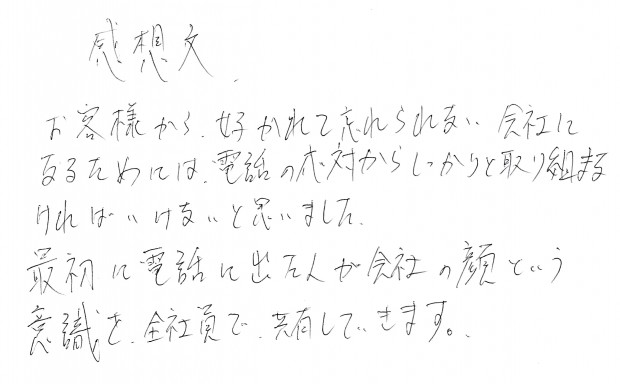 感想文
お客様から、好かれて忘れられない会社に
なるためには、電話の応対からしっかりと取り組まな
ければいけないと思いました。
最初に電話に出た人が会社の顔という
意識を、全社員で、共有していきます。